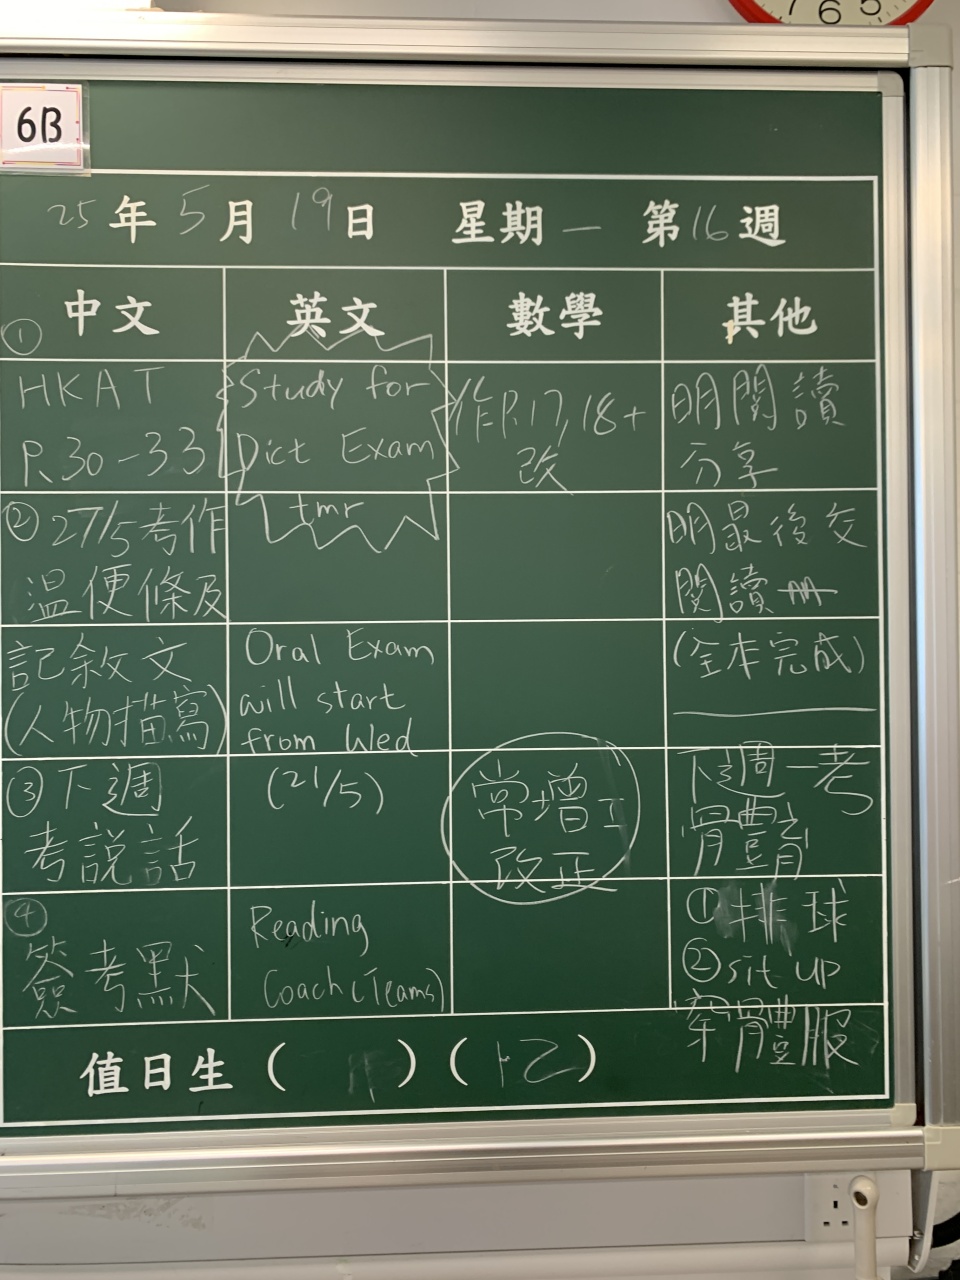 7 6 5
6B
25年5月19日 星期一 第16週
中文 英文 數學 其他
①
HKAT
P.30-33
② 27/5考作
溫便條及
記敘文
(人物描寫)
③下週
考說話
④
簽考默
Study for
Dict Exam
tmr
Oral Exam
will start
from Wed
(21/5)
Reading
Coach (Teams)
作P.17,18+
改
常增工
改正
明閱讀
分享
明最後交
閱讀
(全本完成)
下週一考
體育
①排球
②sit up
穿體服
值日生( )( )